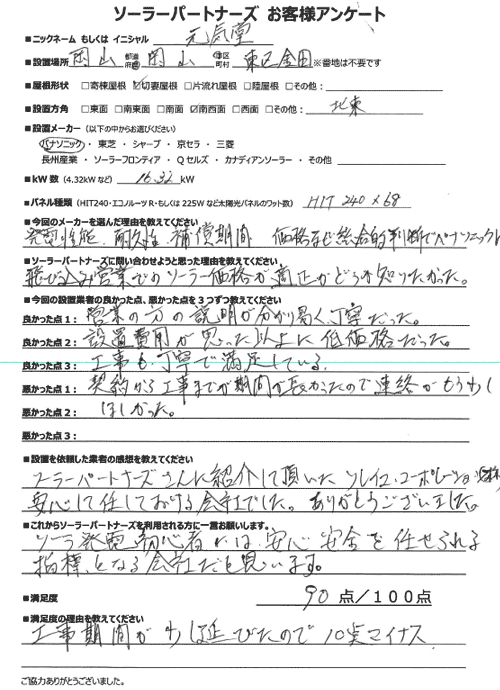 ソーラーパートナーズ お客様アンケート
■ニックネーム もしくは イニシャル 元気堂
■設置場所 岡山 都道府県 岡山 市区町村 東区金田 ※番地は不要です
■屋根形状 □寄棟屋根 ☑切妻屋根 □片流れ屋根 □陸屋根 □その他：
■設置方角 □東面 □南東面 □南面 ☑南西面 □西面 □その他： 北東
■設置メーカー （以下の中からお選びください）
パナソニック ・ 東芝 ・ シャープ ・ 京セラ ・ 三菱
長州産業 ・ ソーラーフロンティア ・ Qセルズ ・ カナディアンソーラー ・ その他
■kW数 (4.32kWなど) 16.32 kW
■パネル種類 (HIT240・エコノルーツR・もしくは225Wなど太陽光パネルのワット数) HIT 240×68
■今回のメーカーを選んだ理由を教えてください
発電性能、耐久性、補償期間、価格など総合的判断でパナソニックに
■ソーラーパートナーズに問い合わせようと思った理由を教えてください
飛び込み営業でのソーラー価格が適正かどうか知りたかった。
■今回の設置業者の良かった点、悪かった点を3つずつ教えてください
良かった点1： 営業の方の説明が分かり易く丁寧だった。
良かった点2： 設置費用が思った以上に低価格だった。
良かった点3： 工事も丁寧で満足している。
悪かった点1： 契約から工事までが期間が長かったので連絡がもう少し
悪かった点2： ほしかった。
悪かった点3：
■設置を依頼した業者の感想を教えてください
ソーラーパートナーズさんに紹介して頂いた コーポレーション
安心して任しておける会社でした。ありがとうございました。
■これからソーラーパートナーズを利用される方に一言お願いします。
ソーラ発電初心者には、安心安全を任せられる
指標となる会社だと思います。
■満足度 90 点／100点
■満足度の理由を教えてください
工事期間が少し延びたので10点マイナス
ご協力ありがとうございました。